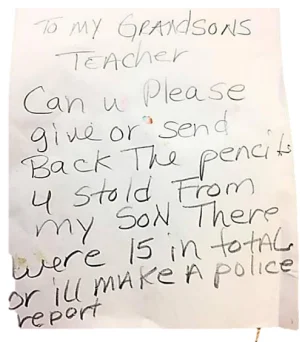 To my GRANDSONS
TEACHER
Can u Please
give or send
Back The pencils
u stold From
my SoN There
were 15 in totAL
or ill MAKE A police
report